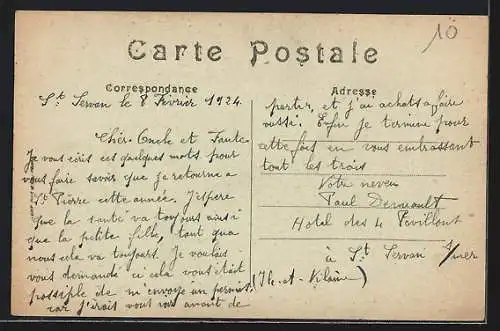 10
Carte Postale
Correspondance
Adresse
St Servan le 8 Février 1924
Cher Oncle et Tante
Je vous écris ces quelques mots pour
vous faire savoir que je retourne a
St Pierre cette année. J'espere
que la santé va toujours ainsi
que la petite fille, tant qua
nous cela va toujours. Je voulais
vous demandé si cela vous était
possible de m'envoyé un permis
car j'irais vous voir avant de
partir, et j'ai achats a faire
aussi. Enfin je termine pour
cette fois en vous embrassant
tout les trois
Votre neveu
Paul
Hotel des 4 Pavillons
à St Servan s/mer
(Ile-et-Vilaine)